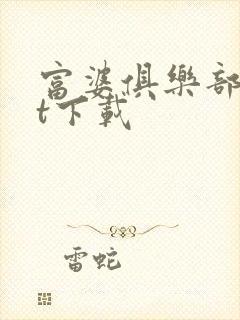 富婆俱樂部
t下載
雷蛇